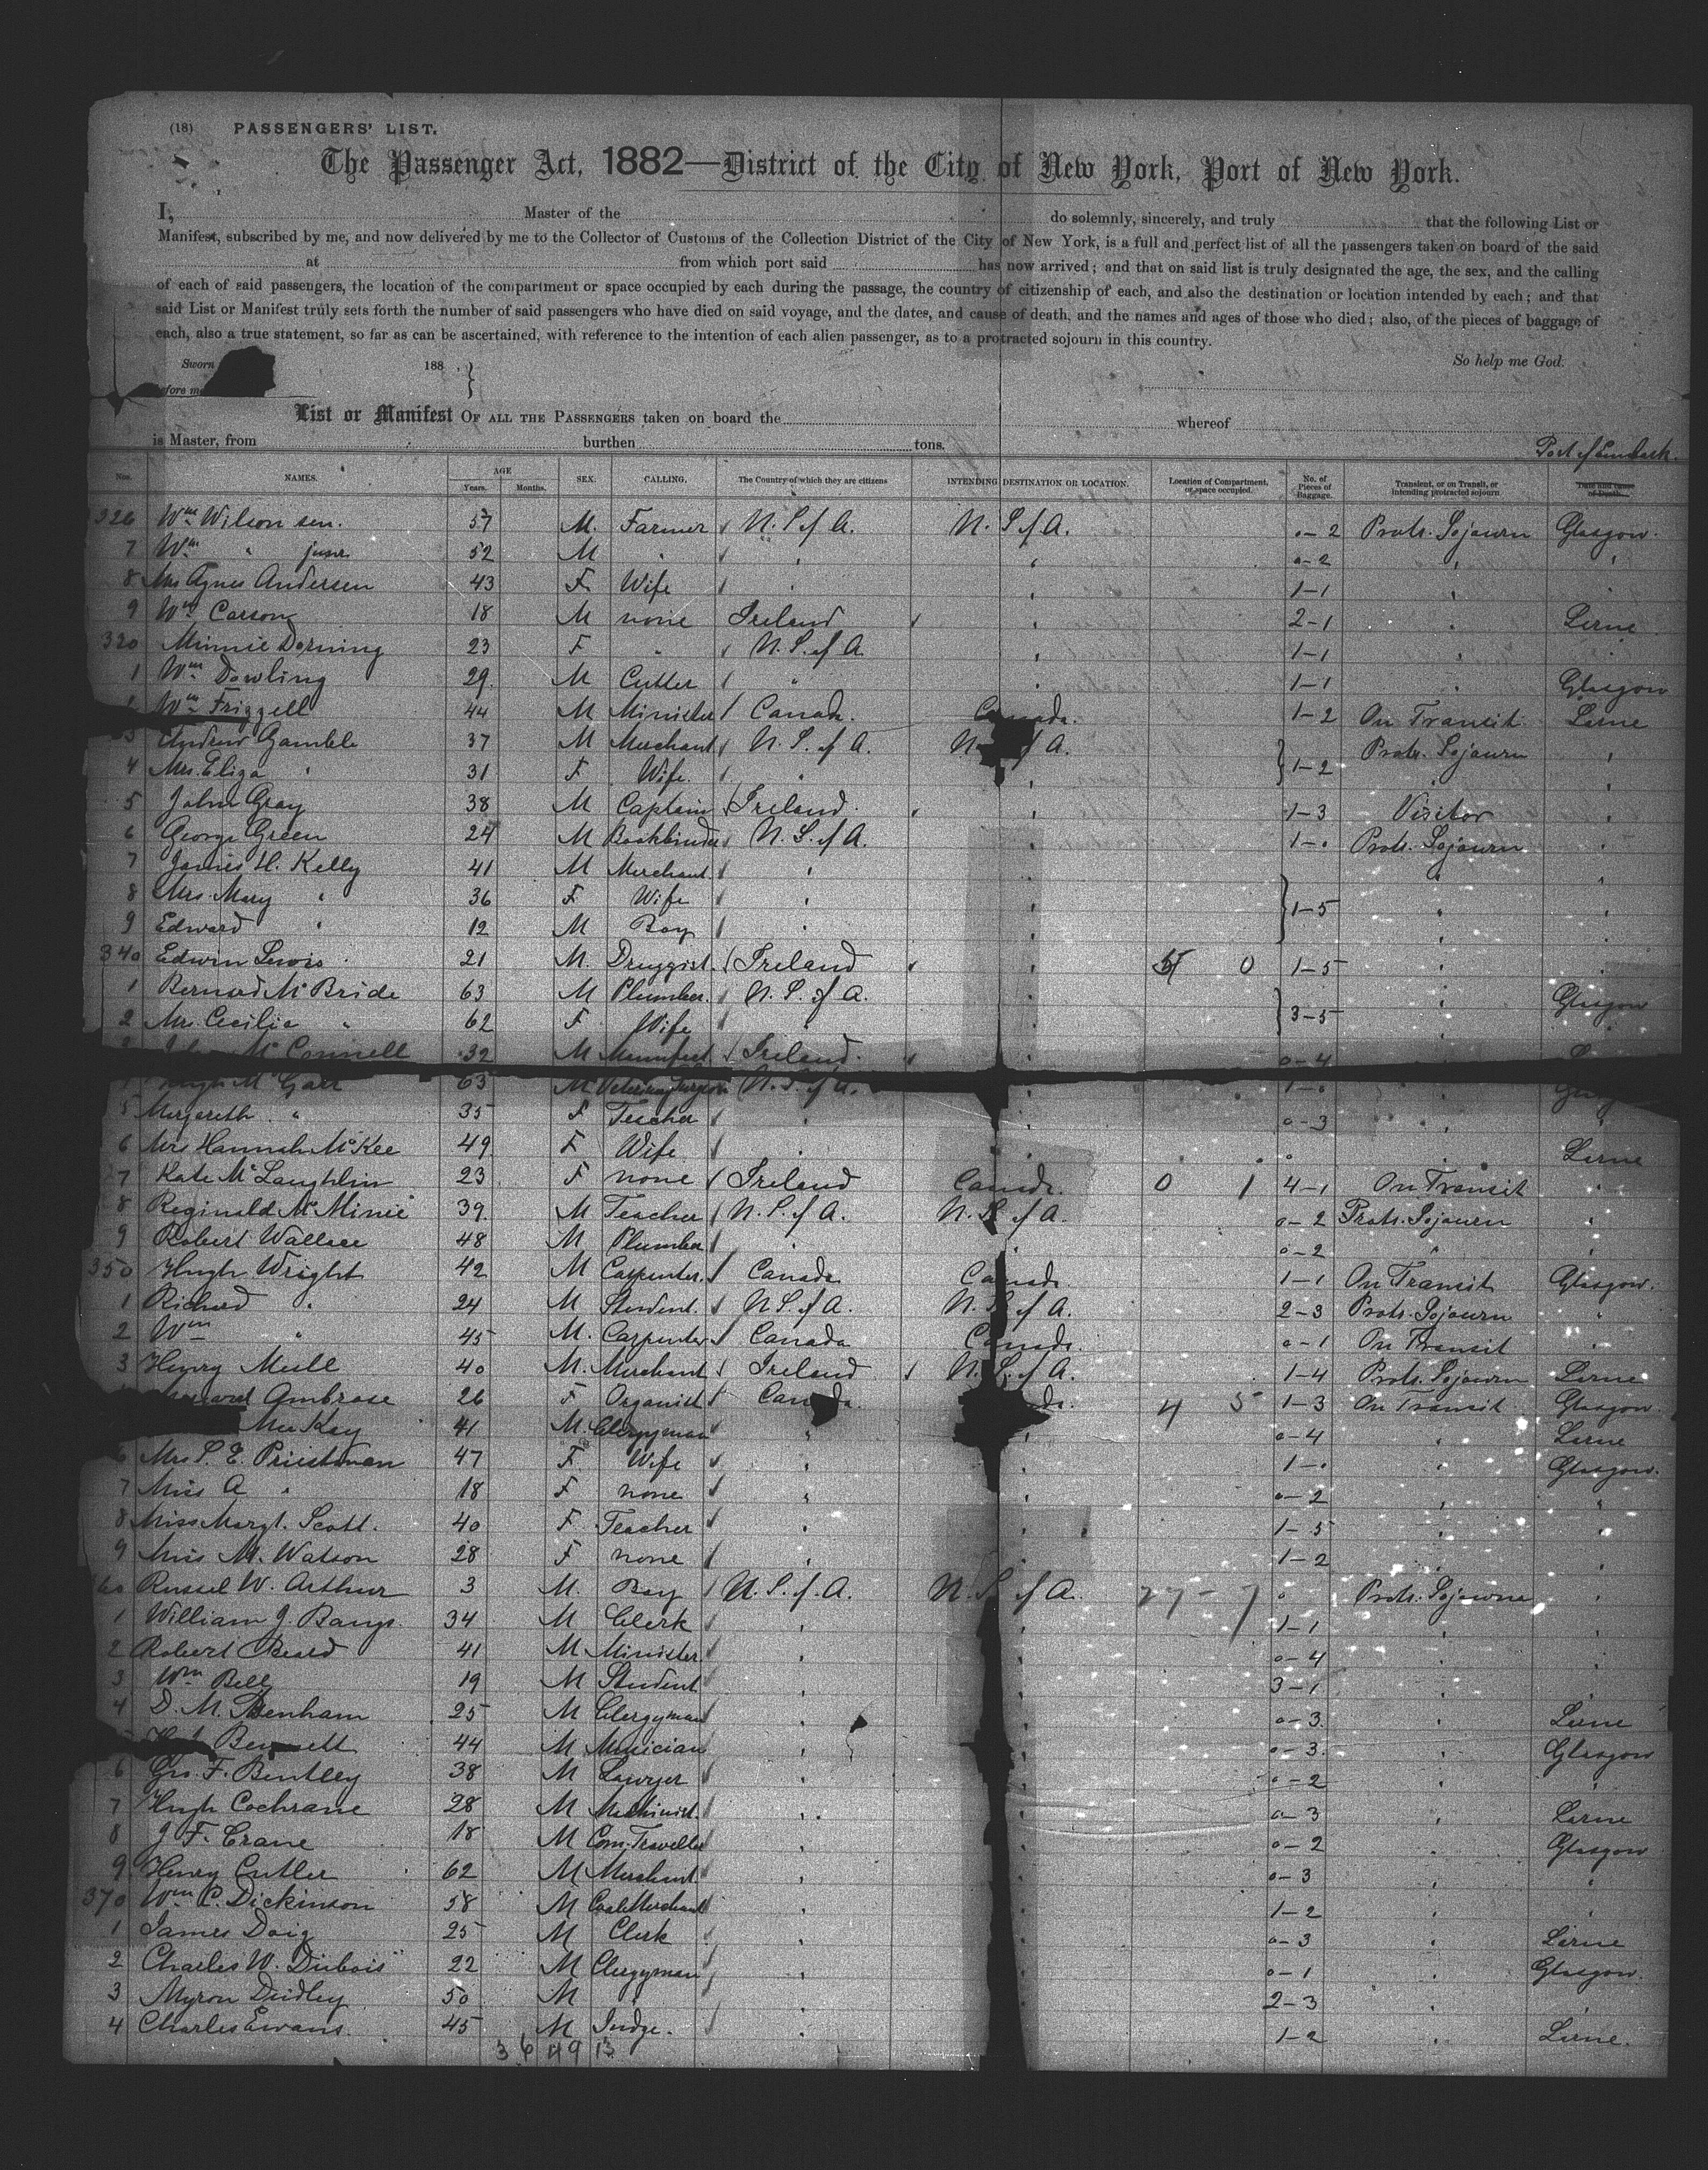 (18) PASSENGERS' LIST.
The Passenger Act, 1882—District of the City of New York, Port of New York.
I, Master of the do solemnly, sincerely, and truly that the following List or
Manifest, subscribed by me, and now delivered by me to the Collector of Customs of the Collection District of the City of New York, is a full and perfect list of all the passengers taken on board of the said
at from which port said has now arrived; and that on said list is truly designated the age, the sex, and the calling
of each of said passengers, the location of the compartment or space occupied by each during the passage, the country of citizenship of each, and also the destination or location intended by each; and that
said List or Manifest truly sets forth the number of said passengers who have died on said voyage, and the dates, and cause of death, and the names and ages of those who died; also, of the pieces of baggage of
each, also a true statement, so far as can be ascertained, with reference to the intention of each alien passenger, as to a protracted sojourn in this country.
Sworn 188 So help me God.
before me
List or Manifest OF ALL THE PASSENGERS taken on board the whereof
is Master, from burthen tons. Port of Embark.
Nos. NAMES. AGE Years. Months. SEX. CALLING. The Country of which they are citizens INTENDING DESTINATION OR LOCATION. Location of Compartment, or space occupied. No. of Pieces of Baggage. Transient, or on Transit, or intending protracted sojourn Date and cause of Death.
326 Wm Wilson sen. 57 M. Farmer U.S. of A. U.S. of A. 0-2 Protr. Sojourn Glasgow.
7 Wm " junr. 52 M " " " 0-2 " "
8 Mrs Agnes Andersen 43 F. Wife " " 1-1 "
9 Wm Carson 18 M none Ireland " 2-1 " Larne
320 Minnie Dorning 23 F " U.S. of A. " 1-1 " "
1 Wm Dowling 29. M Cutler " " 1-1 " Glasgow
Wm Frizzell 44 M Minister Canada. Canada. 1-2 On Transit. Larne
3 Andrew Gamble 37 M Merchant U.S. of A. U. of A. Protr. Sojourn "
4 Mrs. Eliza " 31 F Wife. " " 1-2 " "
5 John Gray 38 M Captain Ireland. " 1-3 Visitor "
6 George Green 24 M Bookbinder U.S. of A. " 1-" Protr. Sojourn "
7 James H. Kelly 41 M Merchant. " " " "
8 Mrs. Mary " 36 F Wife " " 1-5 " "
9 Edward " 12 M Boy " " " "
340 Edwin Lewis 21 M. Druggist. Ireland " 0 1-5 " "
1 Bernard McBride 63 M Plumber. U.S. of A. " " Glasgow
2 Mrs. Cecilie " 62 F Wife " " 3-5 " "
McConnell 32 M Ireland. 0-4
63 M Veterinary Surgeon U.S. of A. 1-
5 Margareth " 35 F Teacher " " 0-3 " "
6 Mrs Hannah McKee 49 F Wife " " " " Larne
7 Kate McLaughlin 23 F none Ireland Canada. 0 1 4-1 On Transit "
8 Reginald McMinie 39. M Teacher U.S. of A. U.S. of A. 0-2 Protr. Sojourn "
9 Robert Wallace 48 M Plumber " " 0-2 " "
350 Hugh Wright 42 M Carpenter. Canada Canada. 1-1 On Transit Glasgow.
1 Richard " 24 M Student. U.S. of A. U.S. of A. 2-3 Protr. Sojourn "
2 Wm " 45 M. Carpenter Canada Canada. 0-1 On Transit "
3 Henry Mull 40 M. Merchant Ireland U.S. of A. 1-4 Protr. Sojourn Larne
Ambrose 26 F Organist Canada. 4 5 1-3 On Transit Glasgow.
MacKay 41 M. Clergyman " " 0-4 " Larne
6 Mrs S. E. Priestman 47 F. Wife " " 1-" " Glasgow.
7 Miss A " 18 F none " " 0-2 " "
8 Miss Margt. Scott. 40 F. Teacher " " 1-5 " "
9 Miss M. Watson 28 F none " " 1-2 " "
60 Russel W. Arthur 3 M. Boy U.S. of A. U.S. of A. 27-7 0 Protr. Sojourn "
1 William J. Bangs. 34 M Clerk " " 1-1 " "
2 Robert Beard 41 M Minister. " " 0-4 " "
3 Wm Bell 19 M Student " " 3-1 " "
4 D. M. Benham 25 M Clergyman " " 0-3 " Larne
Bennett 44 M Musician " " 0-3. " Glasgow
6 Geo. F. Bentley 38 M Lawyer " " 0-2 " "
7 Hugh Cochrane 28 M Machinist. " " 0-3 " Larne
8 J. F. Crane 18 M Com. Traveller " " 0-2 " Glasgow
9. Henry Cutler 62 M Merchant " " 0-3 " "
370 Wm C. Dickinson 58 M Coal Merchant " " 1-2 " "
1 James Doig 25 M Clerk " " 0-3 " Larne
2 Charles W. Dubois 22 M Clergyman " " 0-1 " Glasgow.
3 Myron Dudley 50 M " " " 2-3 " "
4 Charles Evans. 45 M Judge. " " 1-2 " Larne.
3 6 49 13